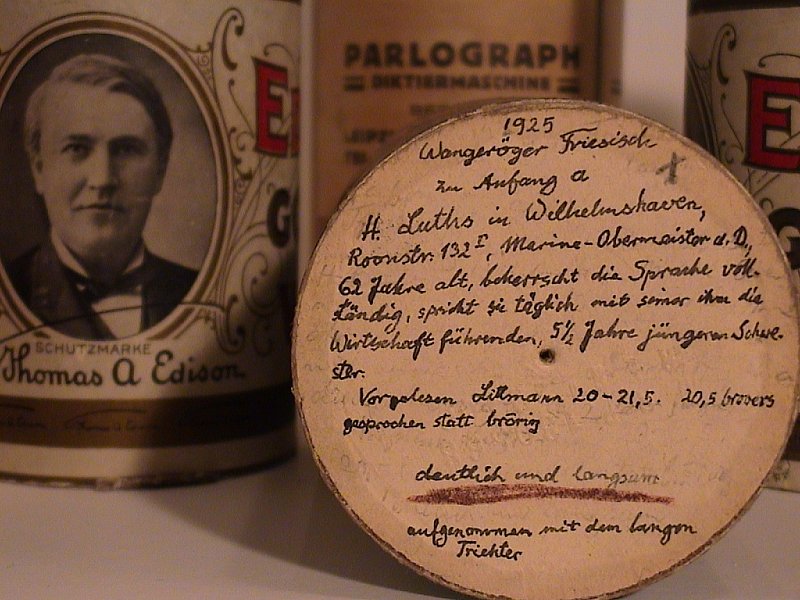 SCHUTZMARKE
Thomas A Edison
E
G
PARLOGRAPH
DIKTIERMASCHINE
E
1925
Wangeröger Friesisch
zu Anfang a
H. Luths in Wilhelmshaven,
Roonstr. 132 I, Marine-Obermeister a. D.,
62 Jahre alt, beherrscht die Sprache voll-
ständig, spricht sie täglich mit seiner ihm die
Wirtschaft führenden, 5½ Jahre jüngeren Schwe-
ster.
Vorgelesen Littmann 20-21,5. 20,5 brovers
gesprochen statt brörig
deutlich und langsam
aufgenommen mit dem langen
Trichter